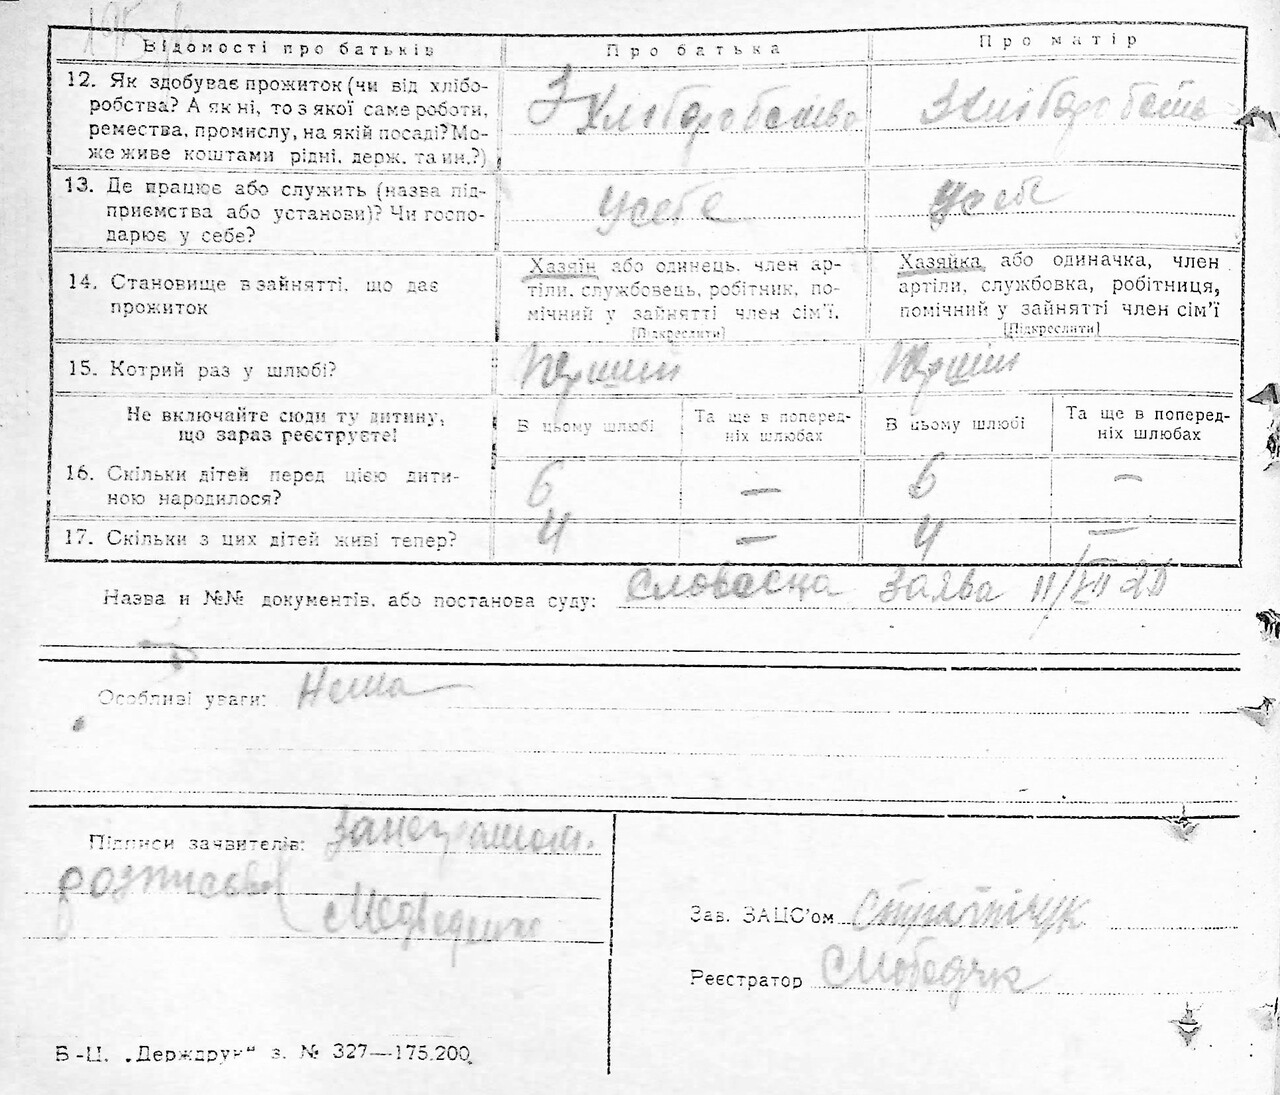 Відомості про батьків
Про батька
Про матір
12. Як здобуває прожиток (чи від хлібо-
робства? А як ні, то з якої саме роботи,
ремества, промислу, на якій посаді? Мо-
же живе коштами рідні, держ. та ин.?)
З Хліборобство
З Хліборобства
13. Де працює або служить (назва під-
приємства або установи)? Чи госпо-
дарює у себе?
У себе
У себе
14. Становище в занятті, що дає
прожиток
Хазяїн або одинець, член ар-
тіли, службовець, робітник, по-
мічний у зайнятті член сім'ї.
[Підкреслити]
Хазяйка або одиначка, член
артіли, службовка, робітниця,
помічний у зайнятті член сім'ї
[Підкреслити]
15. Котрий раз у шлюбі?
Перший
Перший
Не включайте сюди ту дитину,
що зараз реєструєте!
В цьому шлюбі
Та ще в поперед-
ніх шлюбах
В цьому шлюбі
Та ще в поперед-
ніх шлюбах
16. Скільки дітей перед цією дити-
ною народилося?
6
—
6
—
17. Скільки з цих дітей живі тепер?
4
—
4
—
Назва и №№ документів, або постанова суду: Словесна заява 11/VII
Особливі уваги: Нема
Підписи заявителів: За неграмотн.
розписався
Медведенко
Зав. ЗАЦС'ом
Реєстратор
Б-Ц. „Держдрук“ з. № 327—175.200.